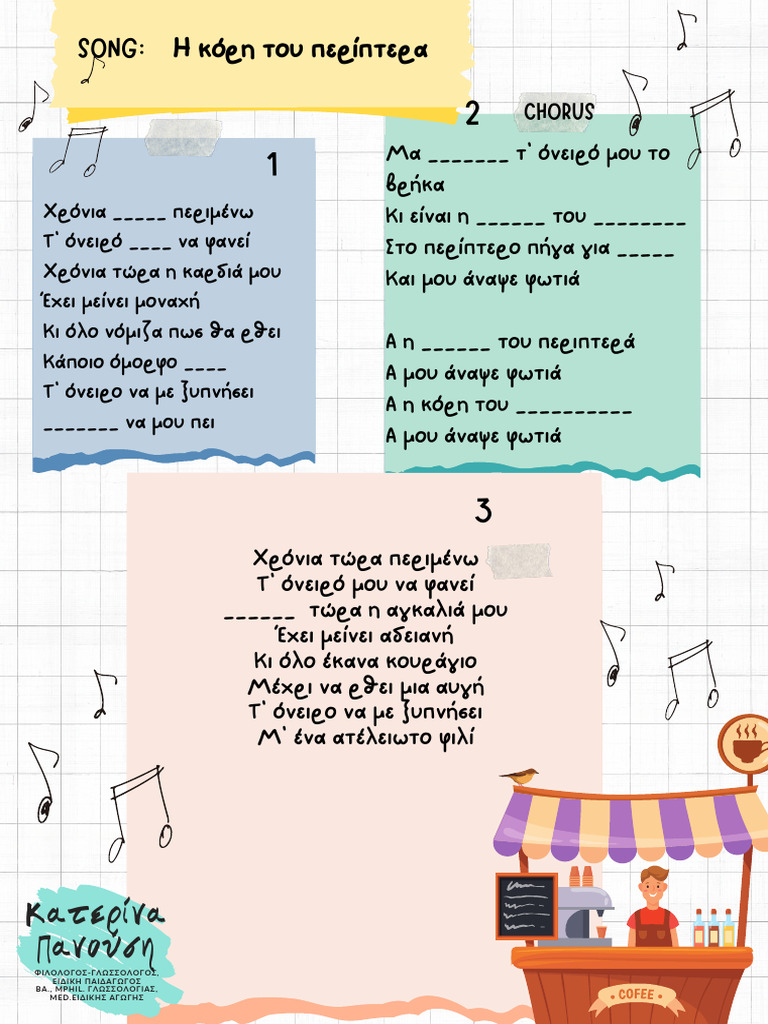 SONG: Η κόρη του περίπτερα
1
Χρόνια _____ περιμένω
Τ' όνειρό ____ να φανεί
Χρόνια τώρα η καρδιά μου
Έχει μείνει μοναχή
Κι όλο νόμιζα πως θα ρθει
Κάποιο όμορφο ____
Τ' όνειρο να με ξυπνήσει
_______ να μου πει
2
CHORUS
Μα _______ τ' όνειρό μου το
βρήκα
Κι είναι η ______ του ________
Στο περίπτερο πήγα για _____
Και μου άναψε φωτιά
Α η ______ του περιπτερά
Α μου άναψε φωτιά
Α η κόρη του __________
Α μου άναψε φωτιά
3
Χρόνια τώρα περιμένω
Τ' όνειρό μου να φανεί
______ τώρα η αγκαλιά μου
Έχει μείνει αδειανή
Κι όλο έκανα κουράγιο
Μέχρι να ρθει μια αυγή
Τ' όνειρο να με ξυπνήσει
Μ' ένα ατέλειωτο φιλί
Κατερίνα
Πανούση
ΦΙΛΟΛΟΓΟΣ-ΓΛΩΣΣΟΛΟΓΟΣ,
ΕΙΔΙΚΗ ΠΑΙΔΑΓΩΓΟΣ
BA., MPHIL. ΓΛΩΣΣΟΛΟΓΙΑΣ,
MED.ΕΙΔΙΚΗΣ ΑΓΩΓΗΣ
COFEE